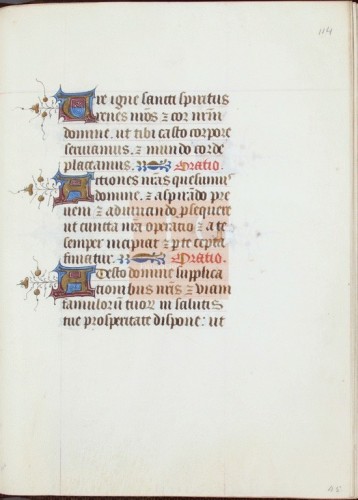 114
Vre igne sancti spiritus
renes nr̄os ⁊ cor nr̄m
domine. ut tibi casto corpore
seruiamus. ⁊ mundo corde
placeamus. Oratio.
Actiones nr̄as quesumus
domine. ⁊ aspirādo pre
ueni ⁊ adiuuando ꝓsequere
ut cuncta nr̄a operatio ⁊ a te
semper incipiat ⁊ p te cepta
finiatur. Oratio.
Adesto domine supplica
tionibus nr̄is ⁊ uiam
famulorum tuorꝝ in salutis
tue prosperitate dispone: ut